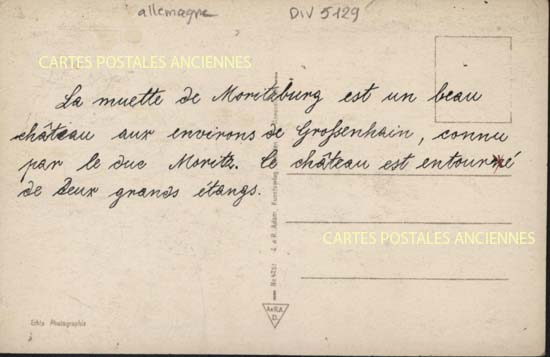 allemagne DIV 5129
CARTES POSTALES ANCIENNES
La muette de Moritzburg est un beau
château aux environs de Grossenhain, connu
par le duc Moritz. Ce château est entouré
de deux grands étangs.
CARTES POSTALES ANCIENNES
A. & R. Adam, Kunstverlag
Echte Photographie
A&R.A.
D.